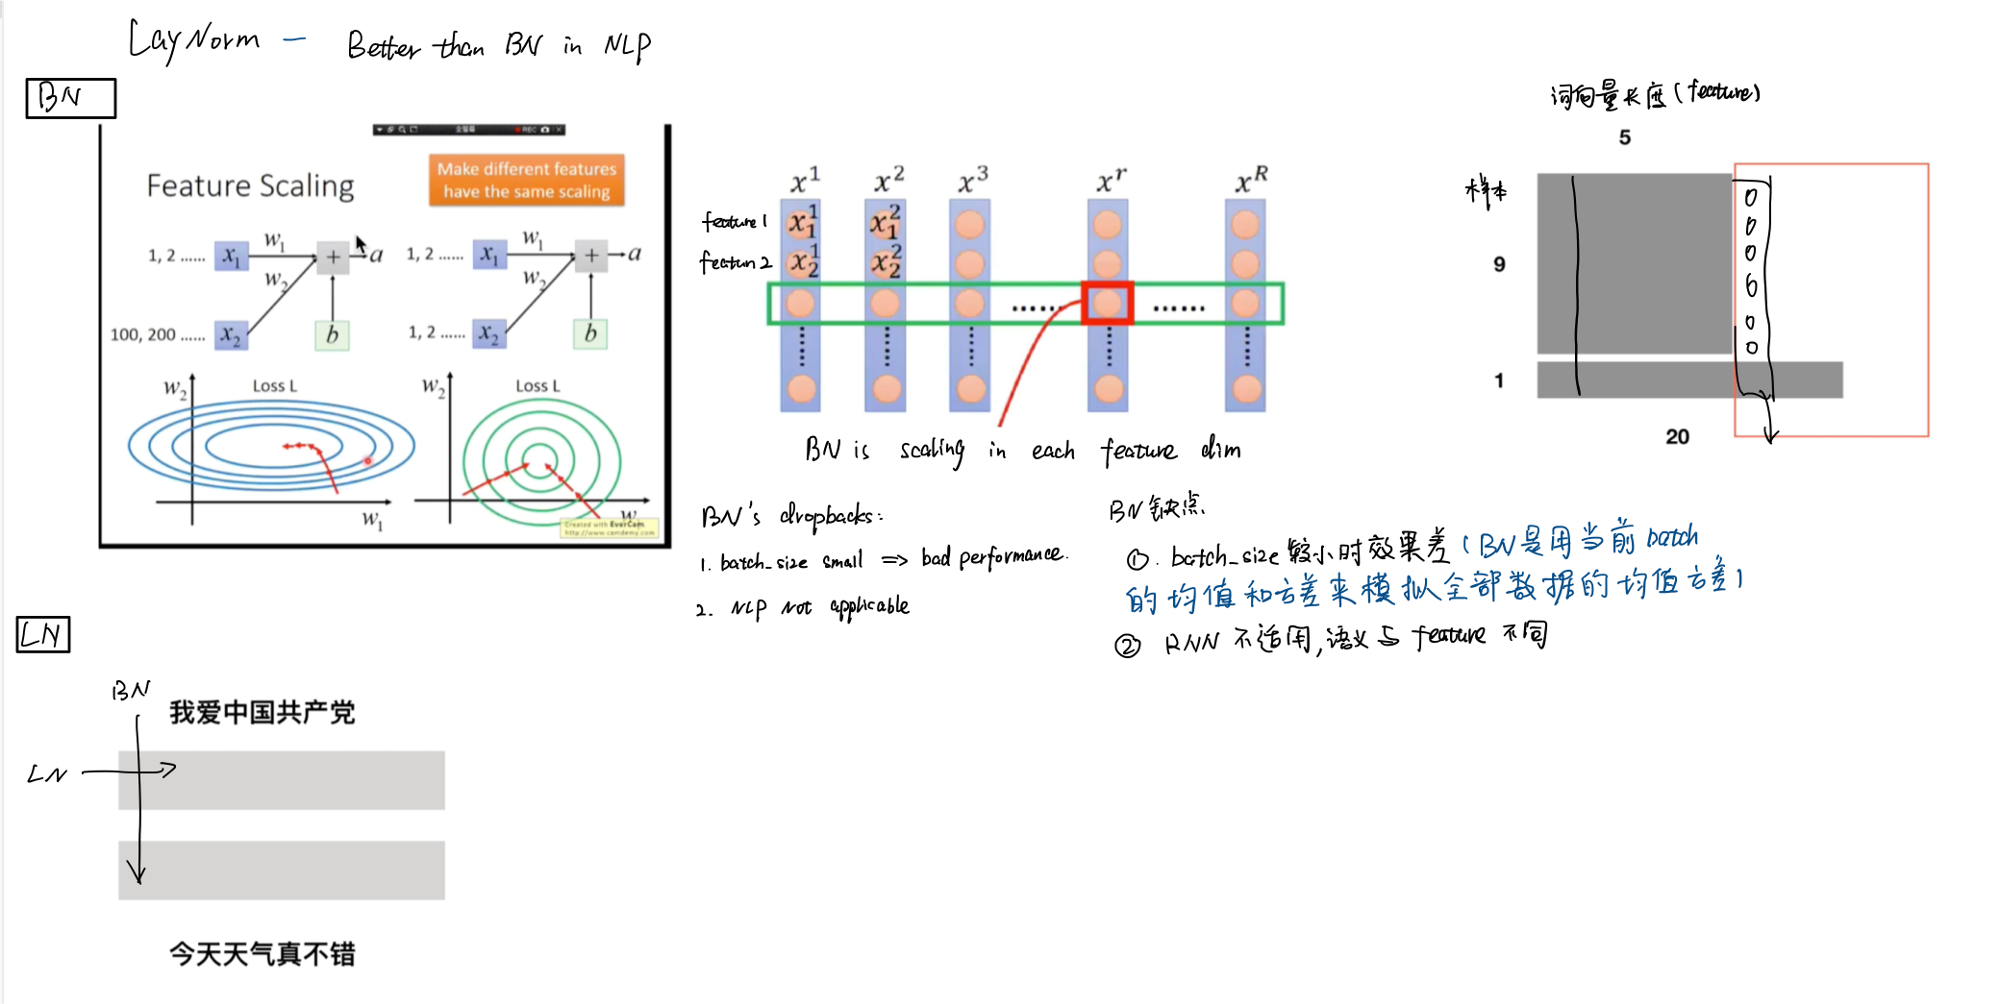 LayNorm - Better than BN in NLP
BN
全屏幕 REC
Feature Scaling
Make different features
have the same scaling
1, 2 ...... x₁ w₁ + a
w₂
100, 200 ...... x₂ b
1, 2 ...... x₁ w₁ + a
w₂
1, 2 ...... x₂ b
w₂ Loss L
w₁
w₂ Loss L
w
Created with EverCam
http://www.camdemy.com
x¹ x² x³ xʳ xᴿ
feature 1 x₁¹ x₁²
featun 2 x₂¹ x₂²
...... ......
BN is scaling in each feature dim
词向量长度(feature)
5
样本
9
1
20
0
0
0
6
0
0
BN's dropbacks:
1. batch_size small => bad performance.
2. NLP Not applicable
BN缺点
①. batch_size 较小时效果差(BN是用当前batch
的均值和方差来模拟全部数据的均值方差)
② RNN 不适用,语义与feature不同
LN
BN
我爱中国共产党
LN
今天天气真不错